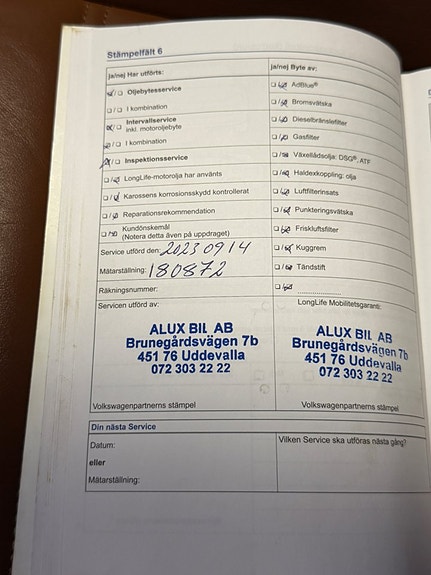 Stämpelfält 6
ja/nej Har utförts:
Oljebytesservice
I kombination
Intervallservice
inkl. motoroljebyte
I kombination
Inspektionsservice
LongLife-motorolja har använts
Karossens korrosionsskydd kontrollerat
Reparationsrekommendation
Kundönskemål
(Notera detta även på uppdraget)
Service utförd den: 20230914
Mätarställning: 180872
Räkningsnummer:
ja/nej Byte av:
AdBlue®
Bromsvätska
Dieselbränslefilter
Gasfilter
Växellådsolja: DSG®, ATF
Haldexkoppling: olja
Luftfilterinsats
Punkteringsvätska
Friskluftsfilter
Kuggrem
Tändstift
Servicen utförd av:
ALUX BIL AB
Brunegårdsvägen 7b
451 76 Uddevalla
072 303 22 22
Volkswagenpartnerns stämpel
LongLife Mobilitetsgaranti:
ALUX BIL AB
Brunegårdsvägen 7b
451 76 Uddevalla
072 303 22 22
Volkswagenpartnerns stämpel
Din nästa Service
Datum:
eller
Mätarställning:
Vilken Service ska utföras nästa gång?